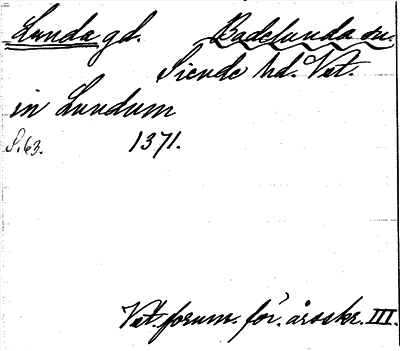 Lunda gd. Badelunda sn.
Siende hd. Vst.
in Lundum
S. 63. 1371.
Vst. fornm. för. årsskr. III.